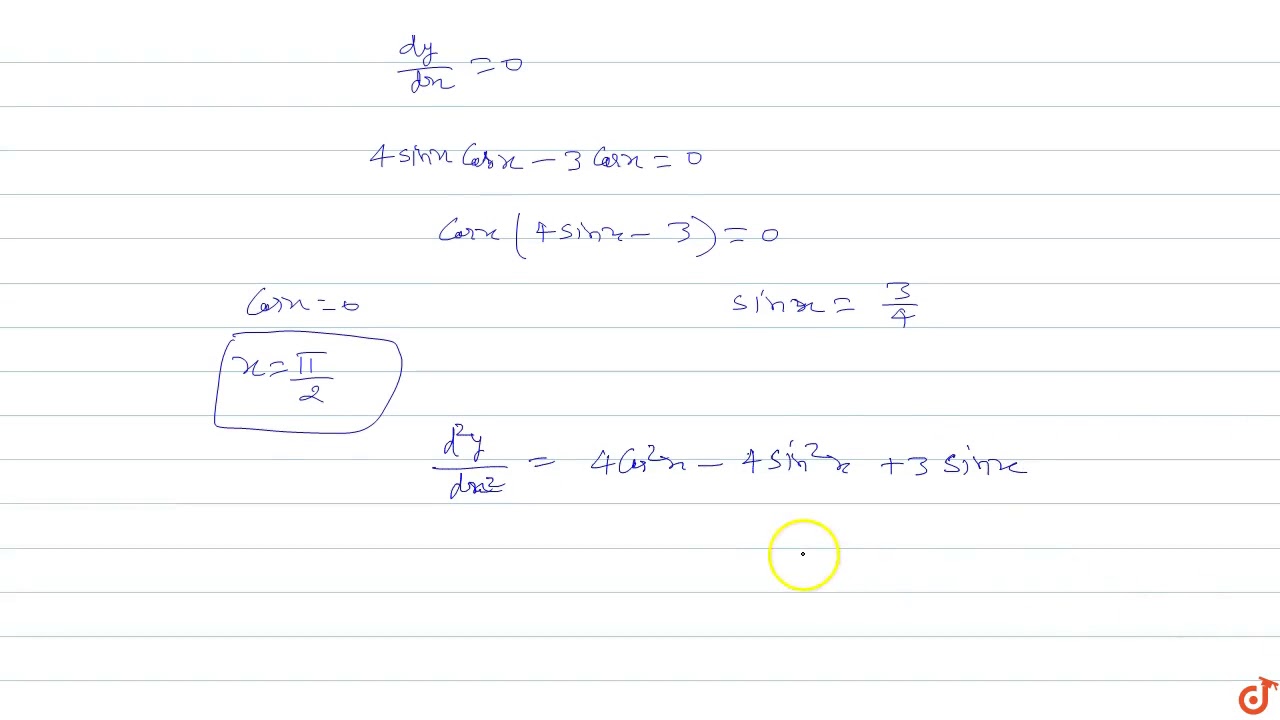 dy/dx = 0
4 sinx Cosx − 3 Cosx = 0
Cosx (4 sinx − 3) = 0
Cosx = 0 sinx = 3/4
x = π/2
d²y/dx² = 4 Cos²x − 4 Sin²x + 3 Sinx